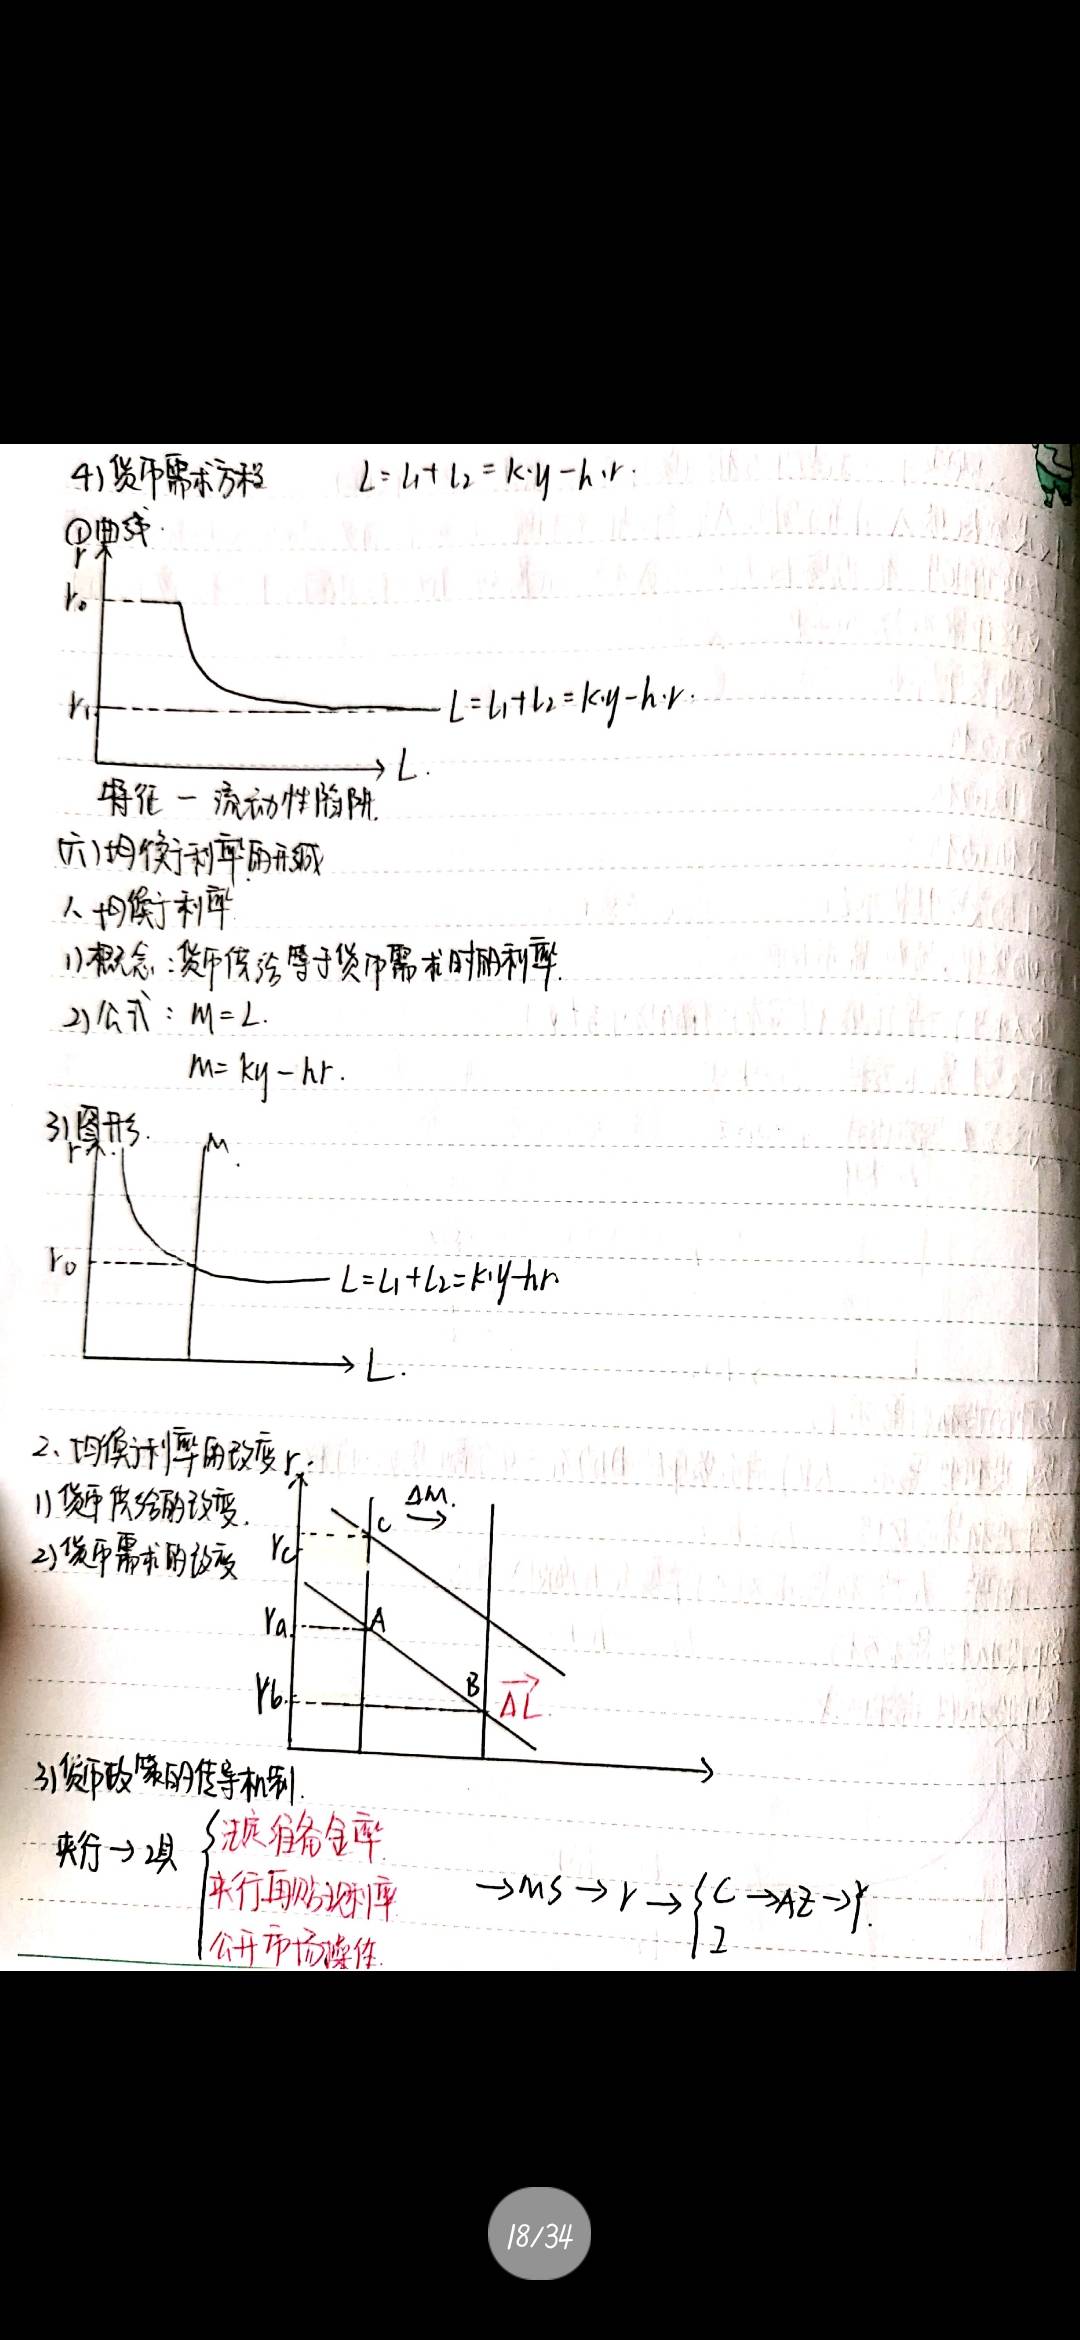 4)货币需求方程 L=L1+L2=k·y-h·r.
①曲线.
r
r0
r1
L=L1+L2=k·y-h·r.
L.
特征—流动性陷阱.
(六)均衡利率的形成
1、均衡利率
1)概念:货币供给等于货币需求时的利率.
2)公式:M=L.
M=ky-hr.
3)图形.
r
M
r0
L=L1+L2=k·y-hr.
L.
2、均衡利率的改变
r
1)货币供给的改变.
ΔM.
2)货币需求的改变
rc
C
ra
A
rb
B
ΔL
3)货币政策的传导机制.
央行→工具
法定准备金率
央行再贴现利率
公开市场操作.
→MS→r→{C I→AE→y.
18/34